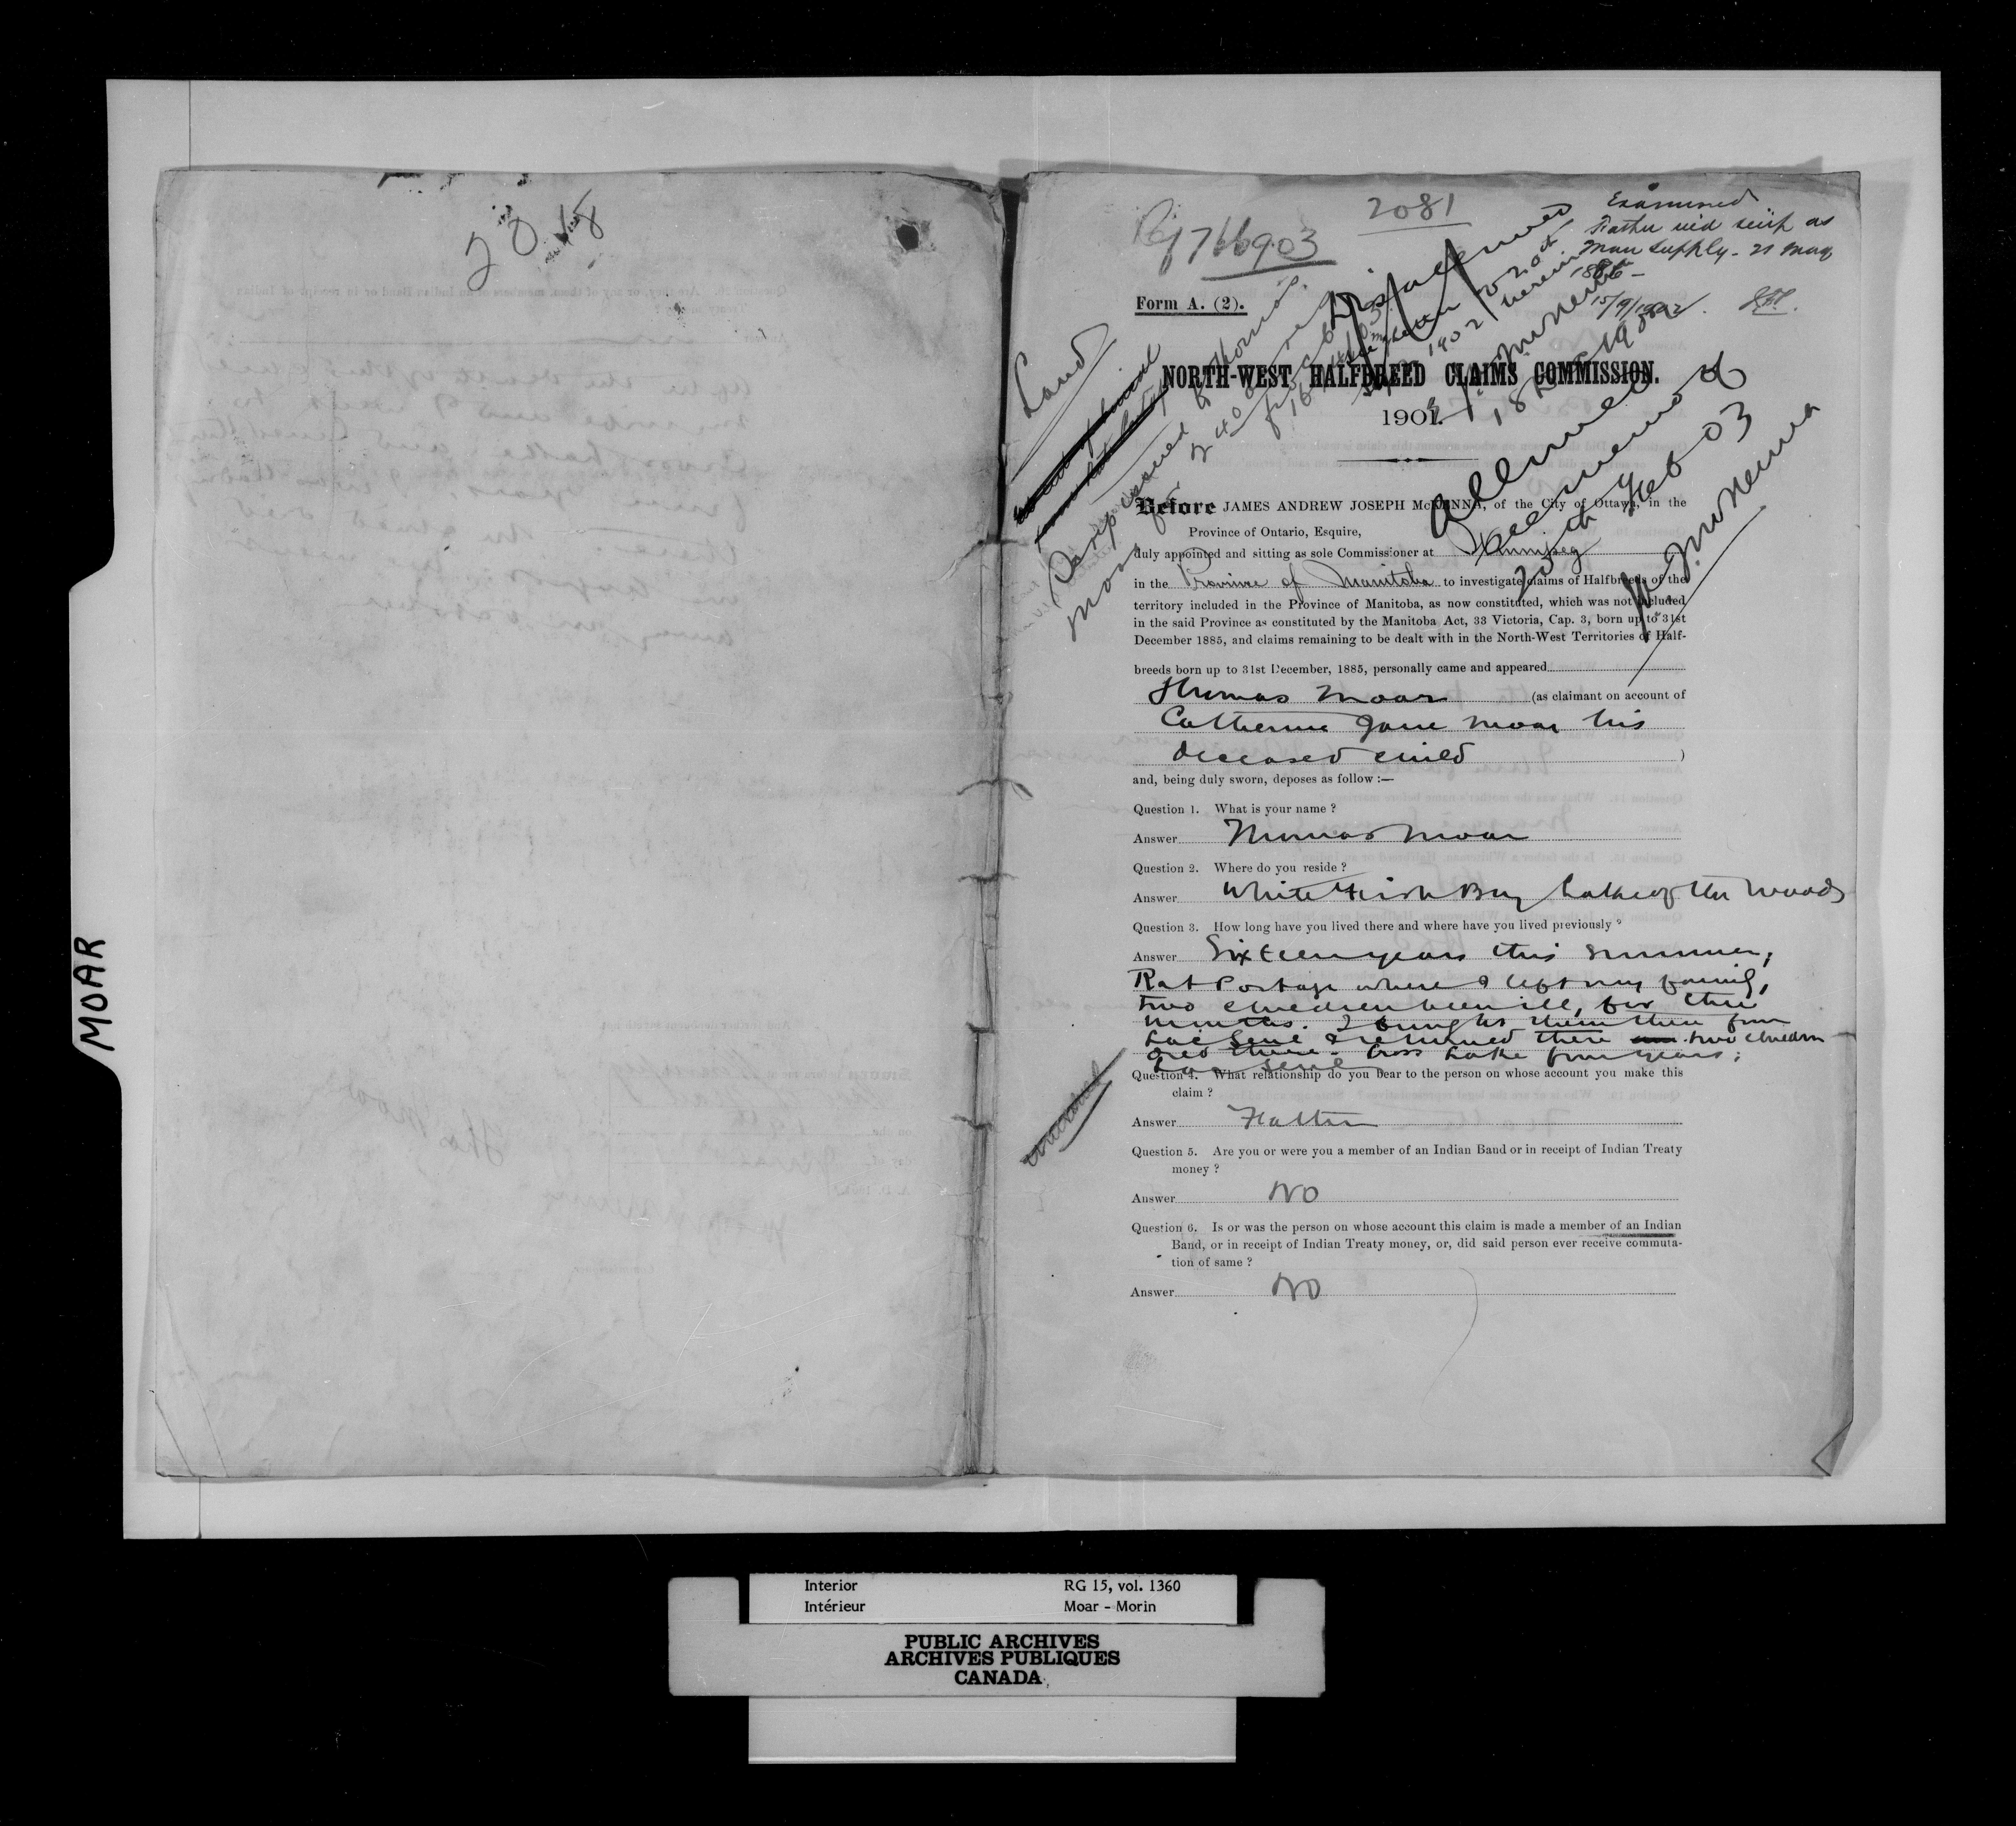 2018
MOAR
2081
766903
Examined
Father
scrip as
supply - 21 May
1886 -
15/9/1902.
Form A. (2).
Land
Disallowed
NORTH-WEST HALFBREED CLAIMS COMMISSION.
1901.
Scrip issued to Thomas
Moar for
Allowed
Feb 03
Before JAMES ANDREW JOSEPH McKENNA, of the City of Ottawa, in the
Province of Ontario, Esquire,
duly appointed and sitting as sole Commissioner at Winnipeg
in the Province of Manitoba to investigate claims of Halfbreeds of the
territory included in the Province of Manitoba, as now constituted, which was not included
in the said Province as constituted by the Manitoba Act, 33 Victoria, Cap. 3, born up to 31st
December 1885, and claims remaining to be dealt with in the North-West Territories of Half-
breeds born up to 31st December, 1885, personally came and appeared
Thomas Moar (as claimant on account of
Catherine Jane Moar his
deceased child )
and, being duly sworn, deposes as follow :—
Question 1. What is your name ?
Answer Thomas Moar
Question 2. Where do you reside ?
Answer White Fish Bay Lake of the Woods
Question 3. How long have you lived there and where have you lived previously ?
Answer Sixteen years this summer,
Rat Portage where I left my family,
two children been ill, for three
months. I brought them there from
Lac Seul & returned there two children
died there - Cross Lake four years ;
Lac Seul
Question 4. What relationship do you bear to the person on whose account you make this
claim ?
Answer Father
Question 5. Are you or were you a member of an Indian Band or in receipt of Indian Treaty
money ?
Answer No
Question 6. Is or was the person on whose account this claim is made a member of an Indian
Band, or in receipt of Indian Treaty money, or, did said person ever receive commuta-
tion of same ?
Answer No
Interior RG 15, vol. 1360
Intérieur Moar - Morin
PUBLIC ARCHIVES
ARCHIVES PUBLIQUES
CANADA